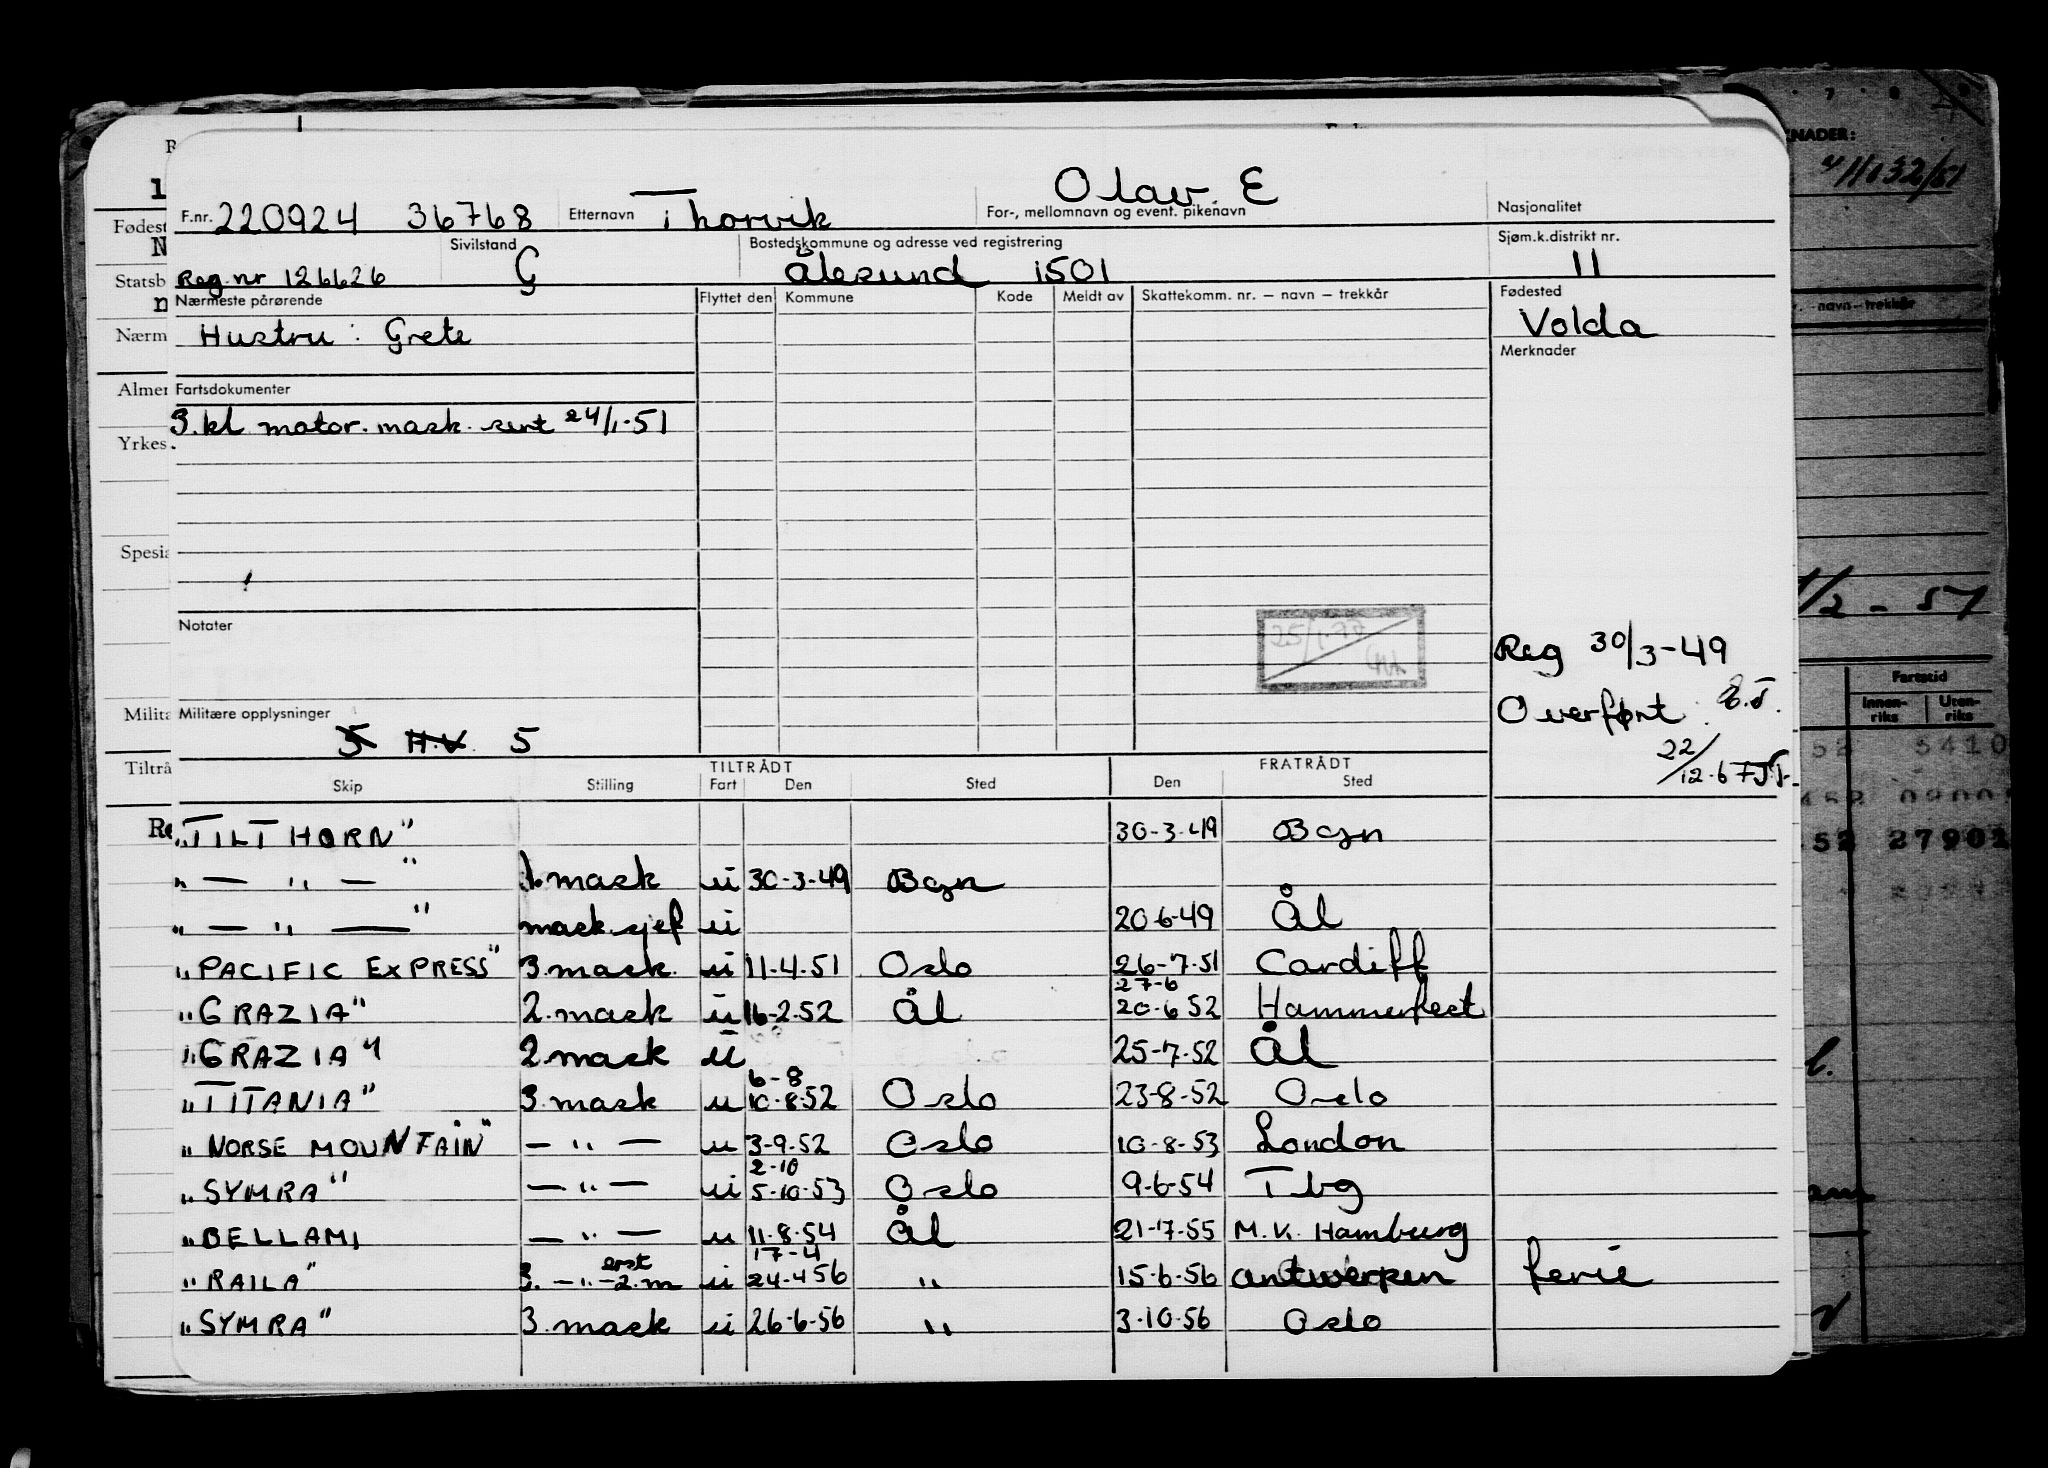 F.nr. 220924 36768 Etternavn Thorvik For-, mellomnavn og event. pikenavn Olav E Nasjonalitet
Reg. nr 126626 Sivilstand G Bostedskommune og adresse ved registrering Ålesund 1501 Sjøm.k.distrikt nr. 11
Nærmeste pårørende Flyttet den Kommune Kode Meldt av Skattekomm. nr. – navn – trekkår Fødested
Hustru : Grete Volda
Merknader
Fartsdokumenter
3.kl motor. mask. sert 24/1-51
Notater
Reg 30/3-49
Overført
22/12-67
Militære opplysninger
5 H.V. 5
TILTRÅDT FRATRÅDT
Skip Stilling Fart Den Sted Den Sted
"TILTHORN" 30-3-49 Bgn
" — " — " 1. mask u 30-3-49 Bgn
" — " — " mask.sjef u 20-6-49 Ål
"PACIFIC EXPRESS" 3. mask. u 11-4-51 Oslo 26-7-51 Cardiff
27-6
"GRAZIA" 2. mask u 16-2-52 Ål 20-6 52 Hammerfest
"GRAZIA" 2. mask u 25-7-52 Ål
6-8
"TITANIA" 3. mask u 10-8-52 Oslo 23-8-52 Oslo
"NORSE MOUNTAIN" — " — u 3-9-52 Oslo 10-8-53 London
2-10
"SYMRA" — " — u 5-10-53 Oslo 9-6-54 Tbg
"BELLAMI — " — u 11-8-54 Ål 21-7-55 M.K. Hamburg
erst 17-4
"RAILA" 3. — " — 2. m u 24-4 56 " 15-6-56 Antwerpen ferie
"SYMRA" 3. mask u 26-6-56 " 3-10-56 Oslo
Fødest
Statsb
Nærm
Almer
Yrkes
Spesia
Milita
Tiltrå
KNADER:
411132/51
navn – trekkår
1/2 - 57
Fartstid
Innen-riks Uten-riks
52 5410
52 27902